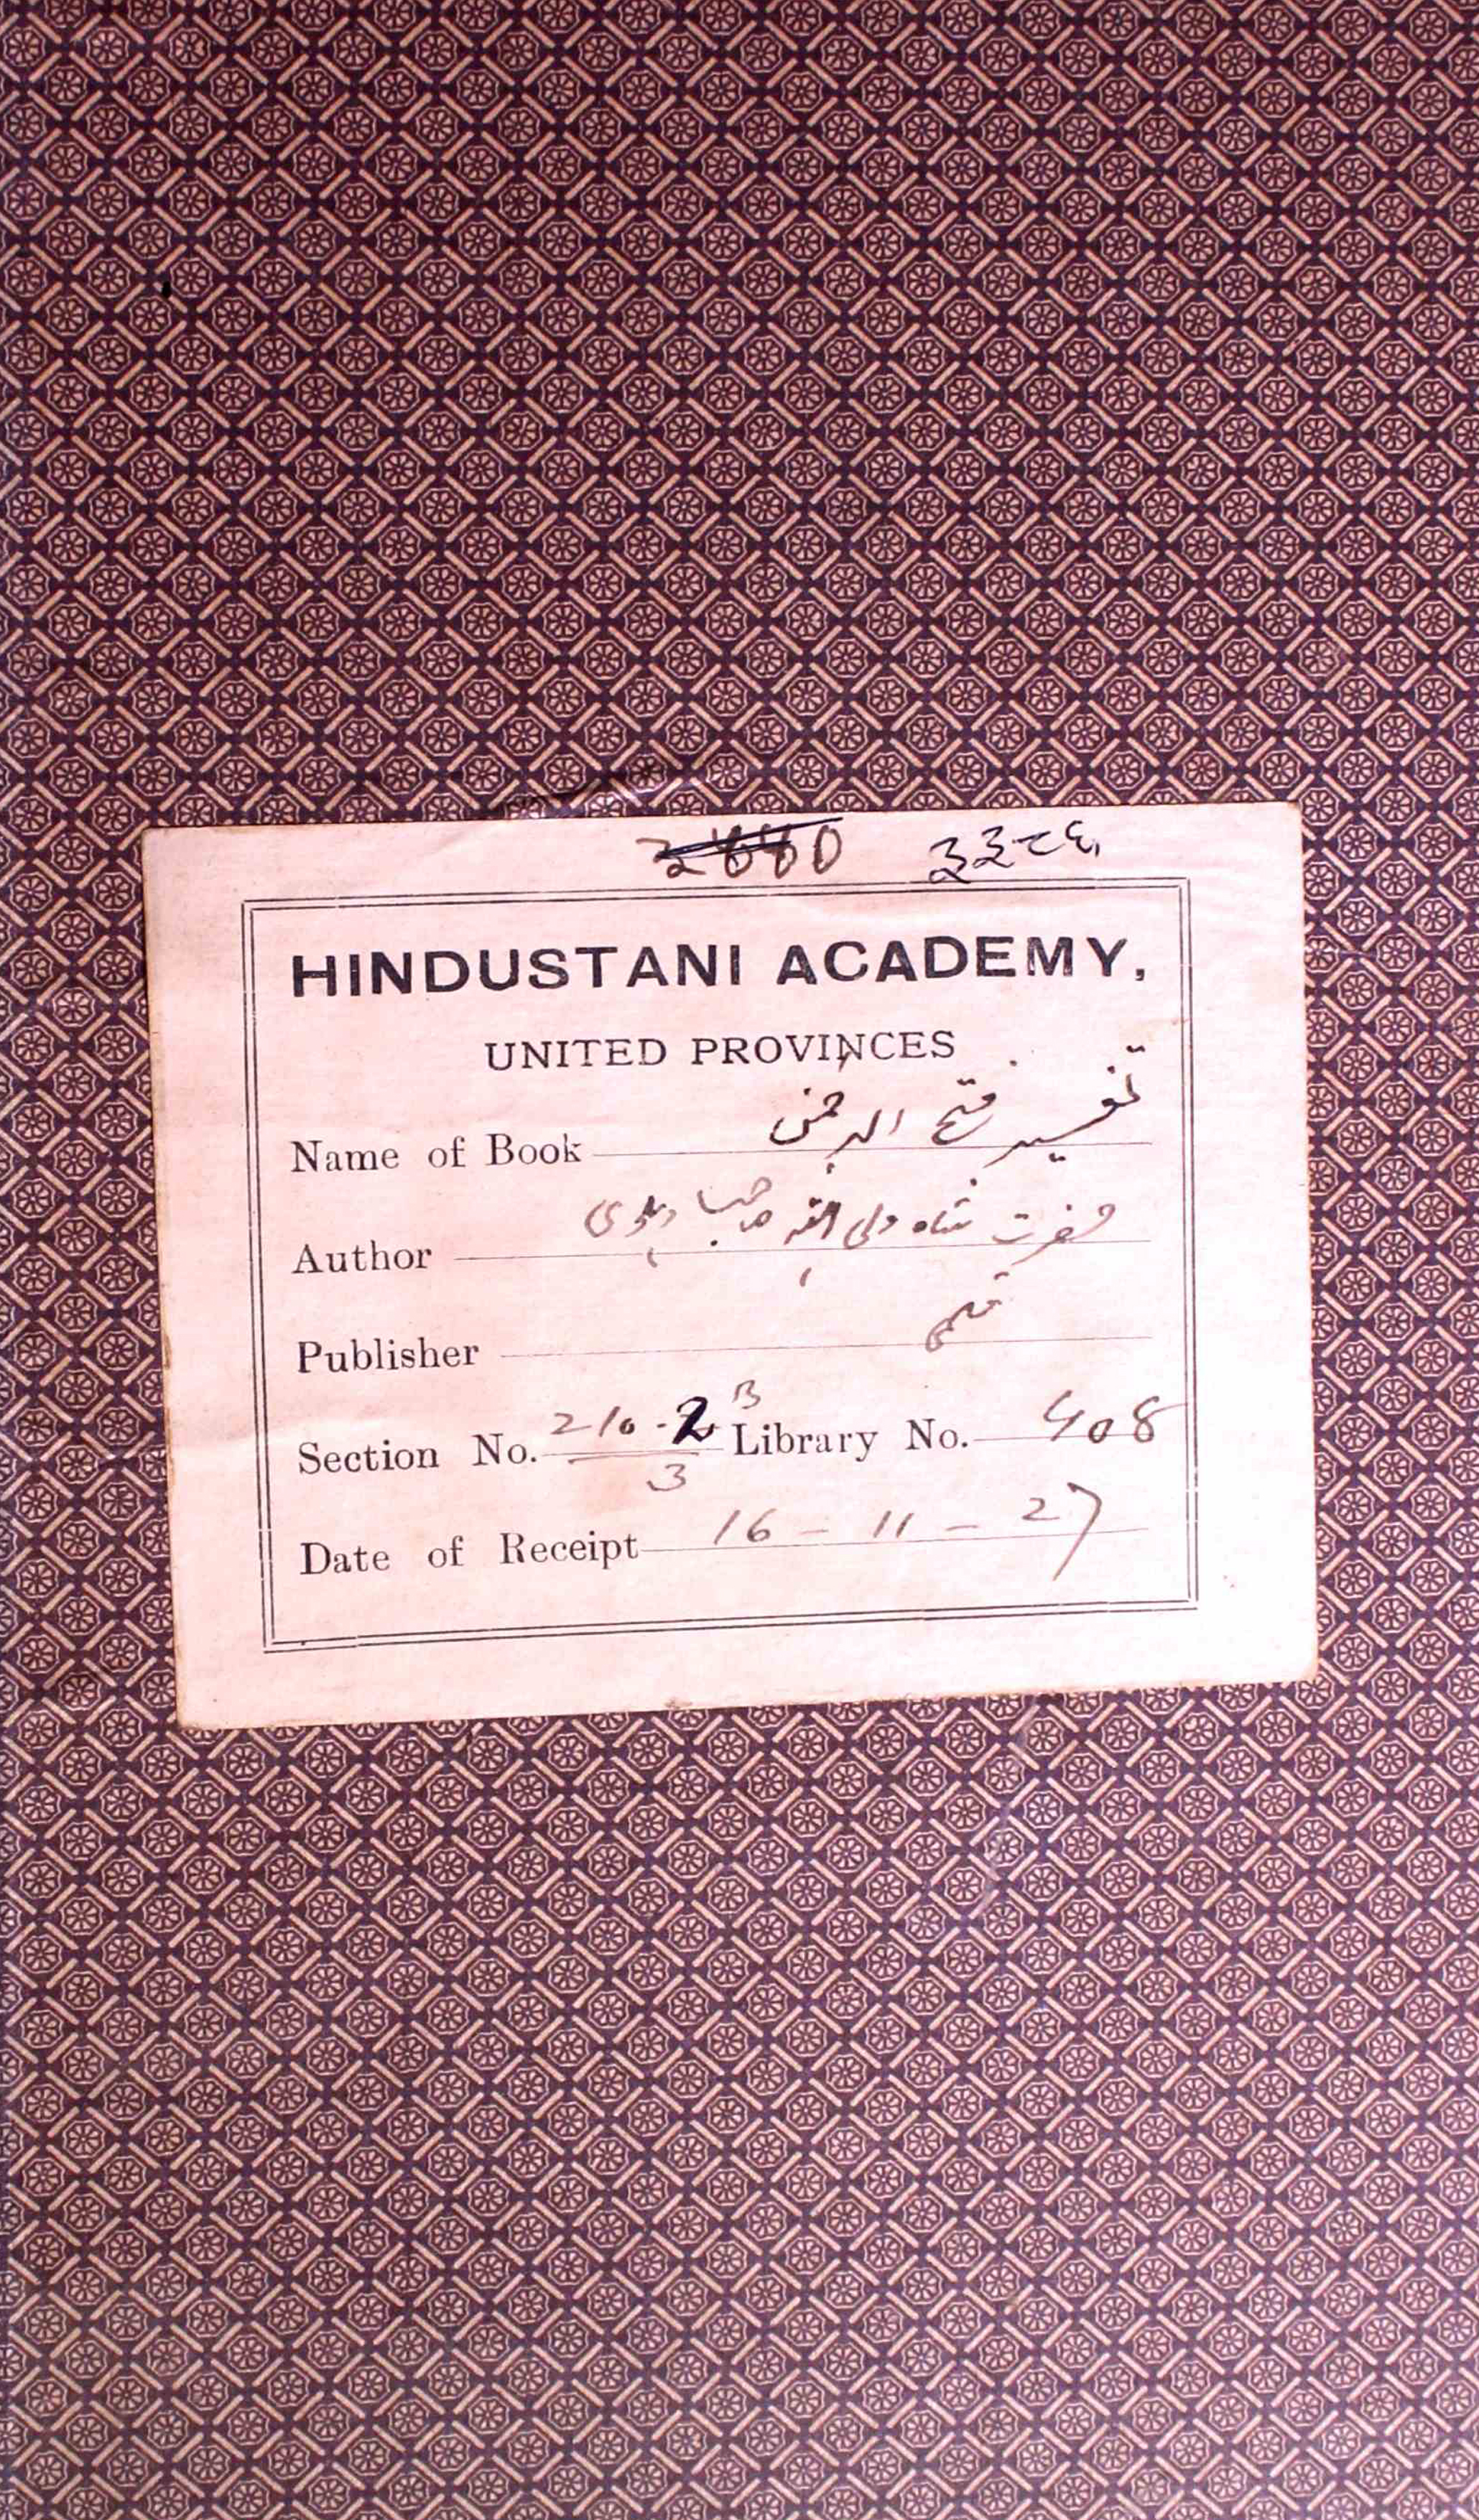 ३३८६
HINDUSTANI ACADEMY,
UNITED PROVINCES
Name of Book تفسیر فتح الرحمن
Author حضرت شاہ ولی اللہ صاحب دہلوی
Publisher قلمی
Section No. 210-2 B/3 Library No. 408
Date of Receipt 16 - 11 - 27